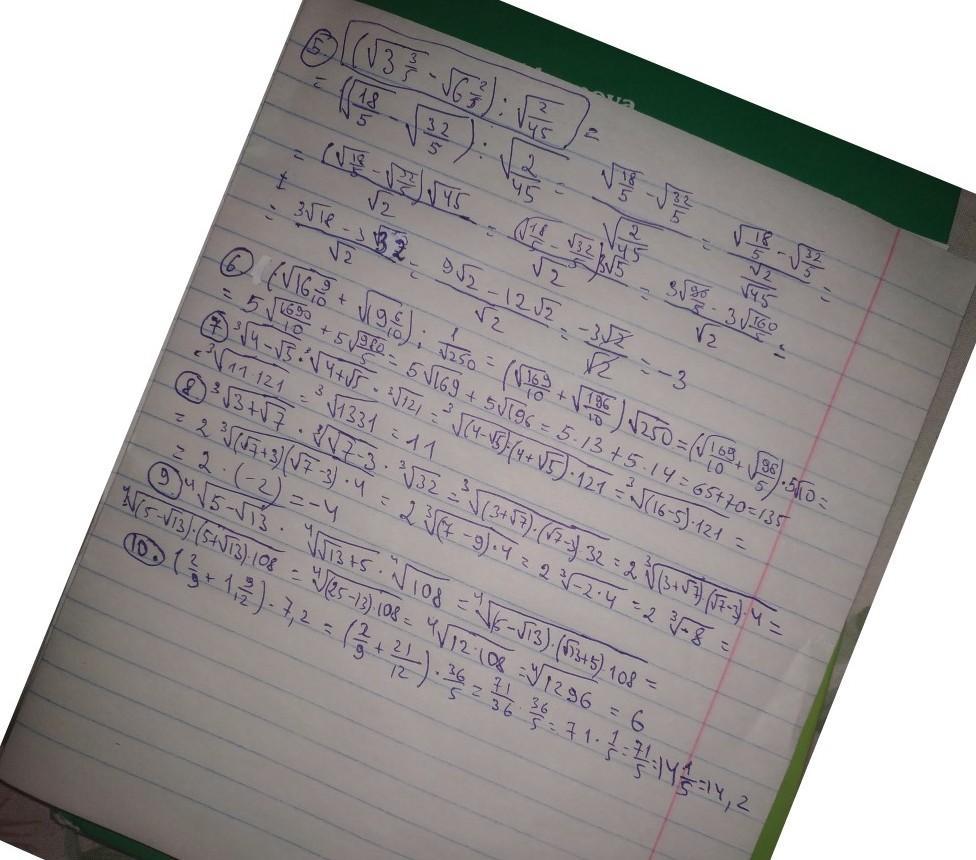 5. (√3 3/5 - √6 2/5) : √2/45 =
= (√18/5 - √32/5) : √2/45 = (√18/5 - √32/5) / √2/45 = (√18/5 - √32/5) / (√2/√45) =
= (√18/5 - √32/5)√45 / √2 = (√18/5 - √32/5)3√5 / √2 = (3√90/5 - 3√160/5) / √2 =
= (3√18 - 3√32) / √2 = (9√2 - 12√2) / √2 = -3√2 / √2 = -3
6. (√16 9/10 + √19 6/10) : 1/√250 = (√169/10 + √196/10) √250 = (√169/10 + √98/5) · 5√10 =
= 5√1690/10 + 5√980/5 = 5√169 + 5√196 = 5·13 + 5·14 = 65+70 = 135
7. ³√4-√5 · ³√4+√5 · ³√121 = ³√(4-√5)·(4+√5)·121 = ³√(16-5)·121 =
= ³√11·121 = ³√1331 = 11
8. ³√3+√7 · ³√√7-3 · ³√32 = ³√(3+√7)·(√7-3)·32 = 2 ³√(3+√7)·(√7-3)·4 =
= 2 ³√(√7+3)(√7-3)·4 = 2 ³√(7-9)·4 = 2 ³√-2·4 = 2 ³√-8 =
= 2 · (-2) = -4
9. ⁴√5-√13 · ⁴√√13+5 · ⁴√108 = ⁴√(5-√13)·(√13+5)·108 =
⁴√(5-√13)·(5+√13)·108 = ⁴√(25-13)·108 = ⁴√12·108 = ⁴√1296 = 6
10. (2/9 + 1 9/12) · 7,2 = (2/9 + 21/12) · 36/5 = 71/36 · 36/5 = 71 · 1/5 = 71/5 = 14 1/5 = 14,2